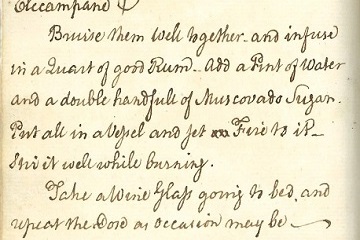 Elecampane &
Bruise them well together and infuse
in a Quart of good Rum. Add a Pint of Water
and a double handfull of Muscovado Sugar.
Put all in a Vessel and set Fire to it
Stir it well while burning.
Take a Wine Glass going to bed, and
repeat the Dose as occasion may be